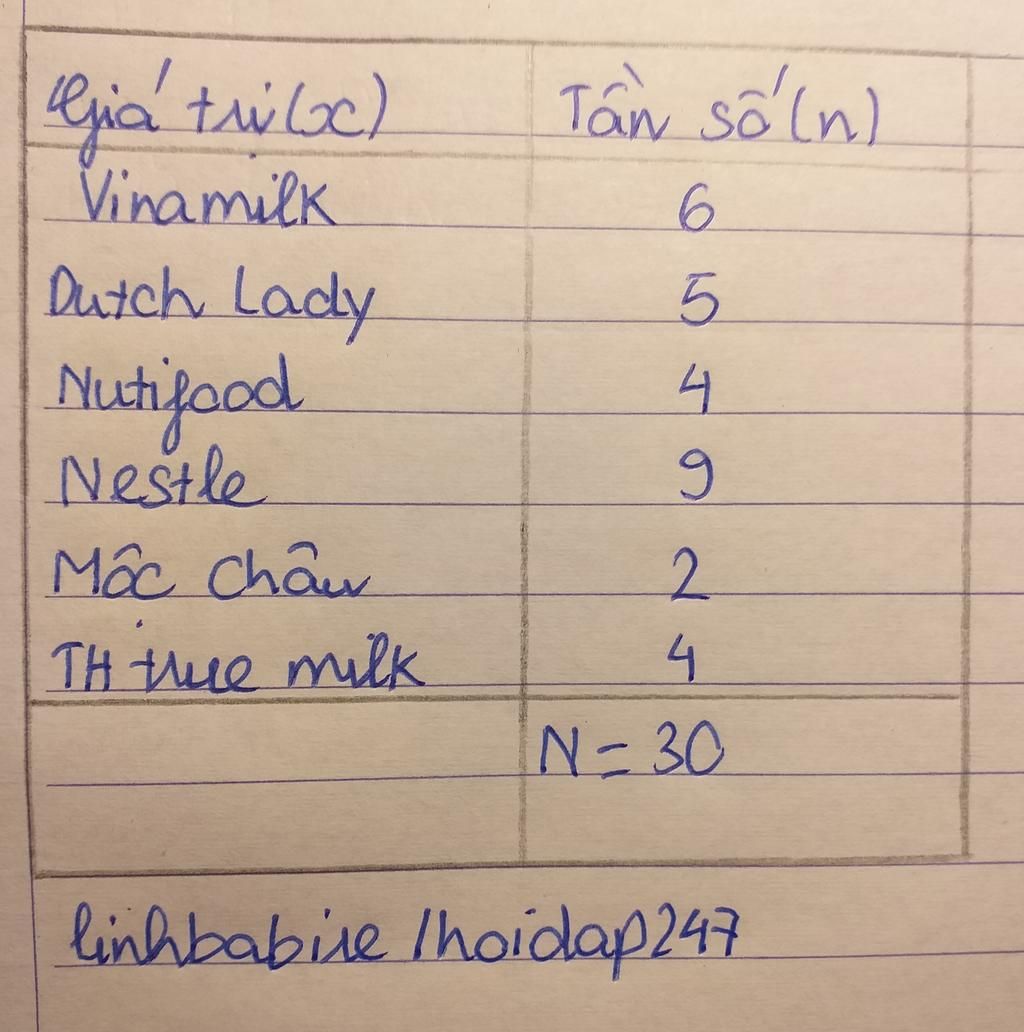 Giá trị (x) Tần số (n)
Vinamilk 6
Dutch Lady 5
Nutifood 4
Nestle 9
Môc Châu 2
TH true milk 4
N = 30
linhbabie /hoidap247